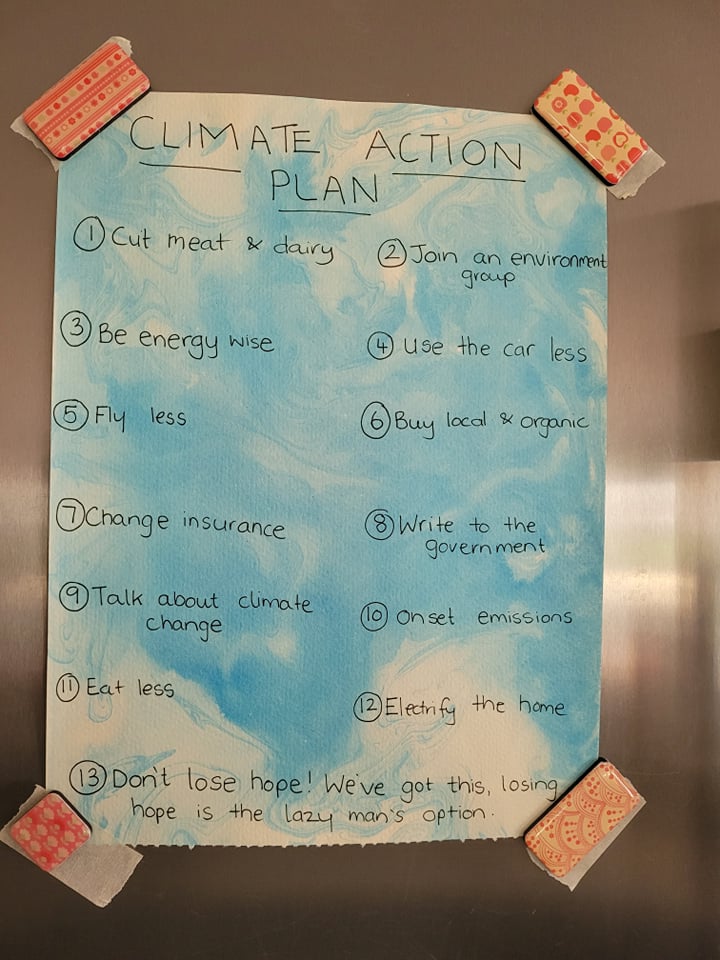 CLIMATE ACTION
PLAN
① Cut meat & dairy
② Join an environment
group
③ Be energy wise
④ Use the car less
⑤ Fly less
⑥ Buy local & organic
⑦ Change insurance
⑧ Write to the
government
⑨ Talk about climate
change
⑩ Onset emissions
⑪ Eat less
⑫ Electrify the home
⑬ Don't lose hope! We've got this, losing
hope is the lazy man's option.